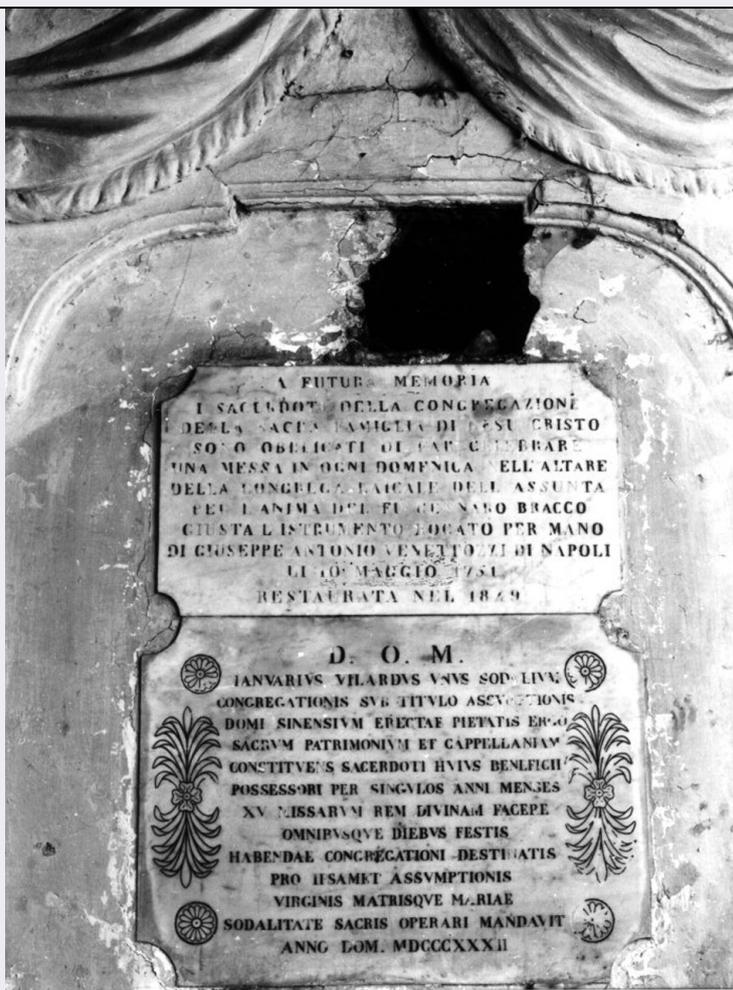 A FUTURA MEMORIA
I SACERDOTI DELLA CONGREGAZIONE
DELLA SACRA FAMIGLIA DI GESU CRISTO
SONO OBBLICATI DI FAR CELEBRARE
UNA MESSA IN OGNI DOMENICA NELL'ALTARE
DELLA CONGREGA LAICALE DELL ASSUNTA
PER L'ANIMA DEL FU GENNARO BRACCO
GIUSTA L ISTRUMENTO ROGATO PER MANO
DI GIUSEPPE ANTONIO VENETTOZZI DI NAPOLI
LI 10 MAGGIO 1751
RESTAURATA NEL 1849
D. O. M.
IANVARIVS VILARDVS VNVS SODALIVM
CONGREGATIONIS SVB TITVLO ASSVMPTIONIS
DOMI SINENSIVM ERECTAE PIETATIS ERGO
SACRVM PATRIMONIVM ET CAPPELLANIAM
CONSTITVENS SACERDOTI HVIVS BENEFICII
POSSESSORI PER SINGVLOS ANNI MENSES
XV MISSARVM REM DIVINAM FACERE
OMNIBVSQVE DIEBVS FESTIS
HABENDAE CONGREGATIONI DESTINATIS
PRO IISAMET ASSVMPTIONIS
VIRGINIS MATRISQVE MARIAE
SODALITATE SACRIS OPERARI MANDAVIT
ANNO DOM. MDCCCXXXII